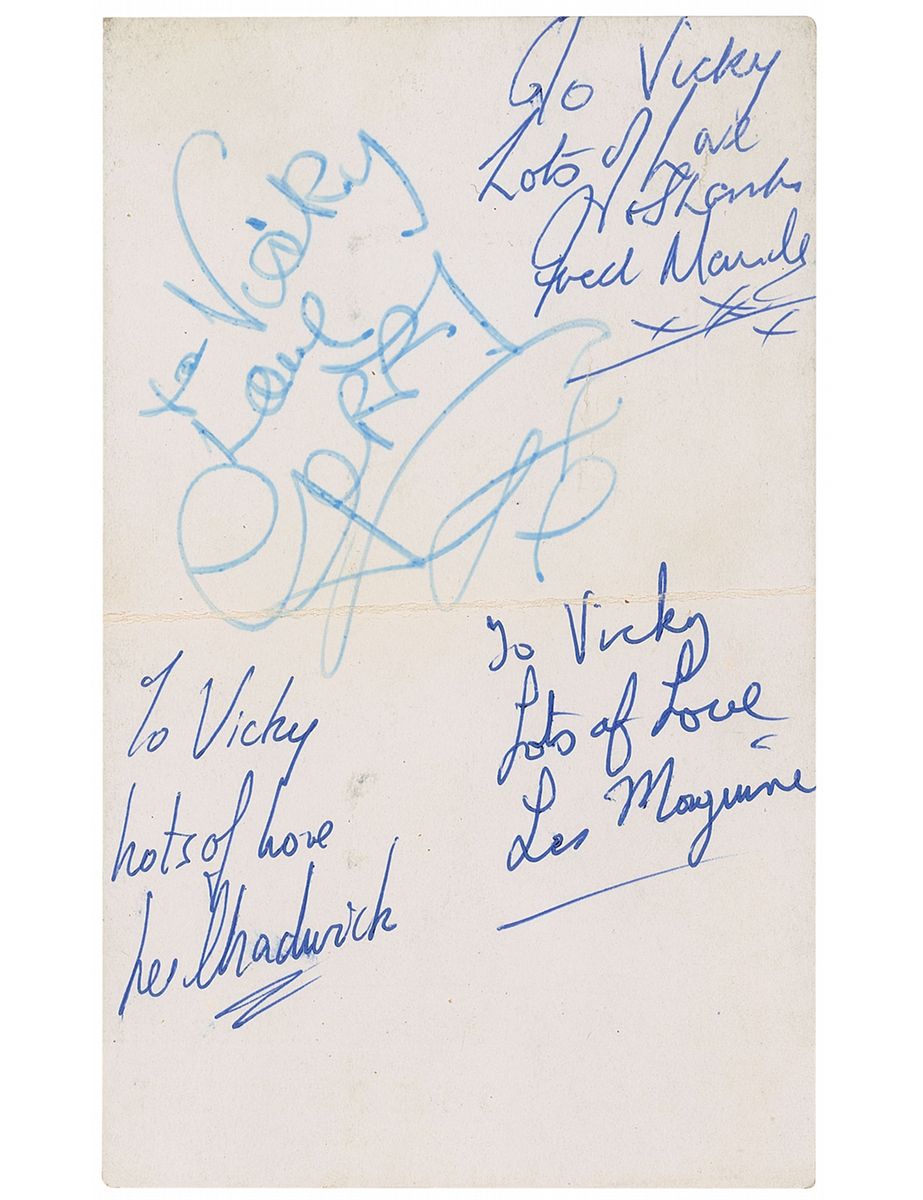 To Vicky
Lots of Love
& Thanks
Fred Marsde
xxx
x
to Vicky
Love
GERRY!
To Vicky
Lots of Love
Les Maguire
To Vicky
Lots of Love
Les Chadwick